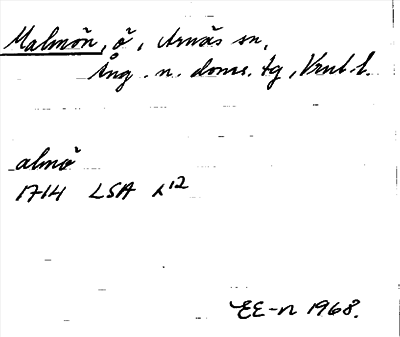 Malmön, ö, Arnäs sn,
Ång. n. doms. tg, Vrnl. l.
almö
1714 LSA
EE-n 1968.